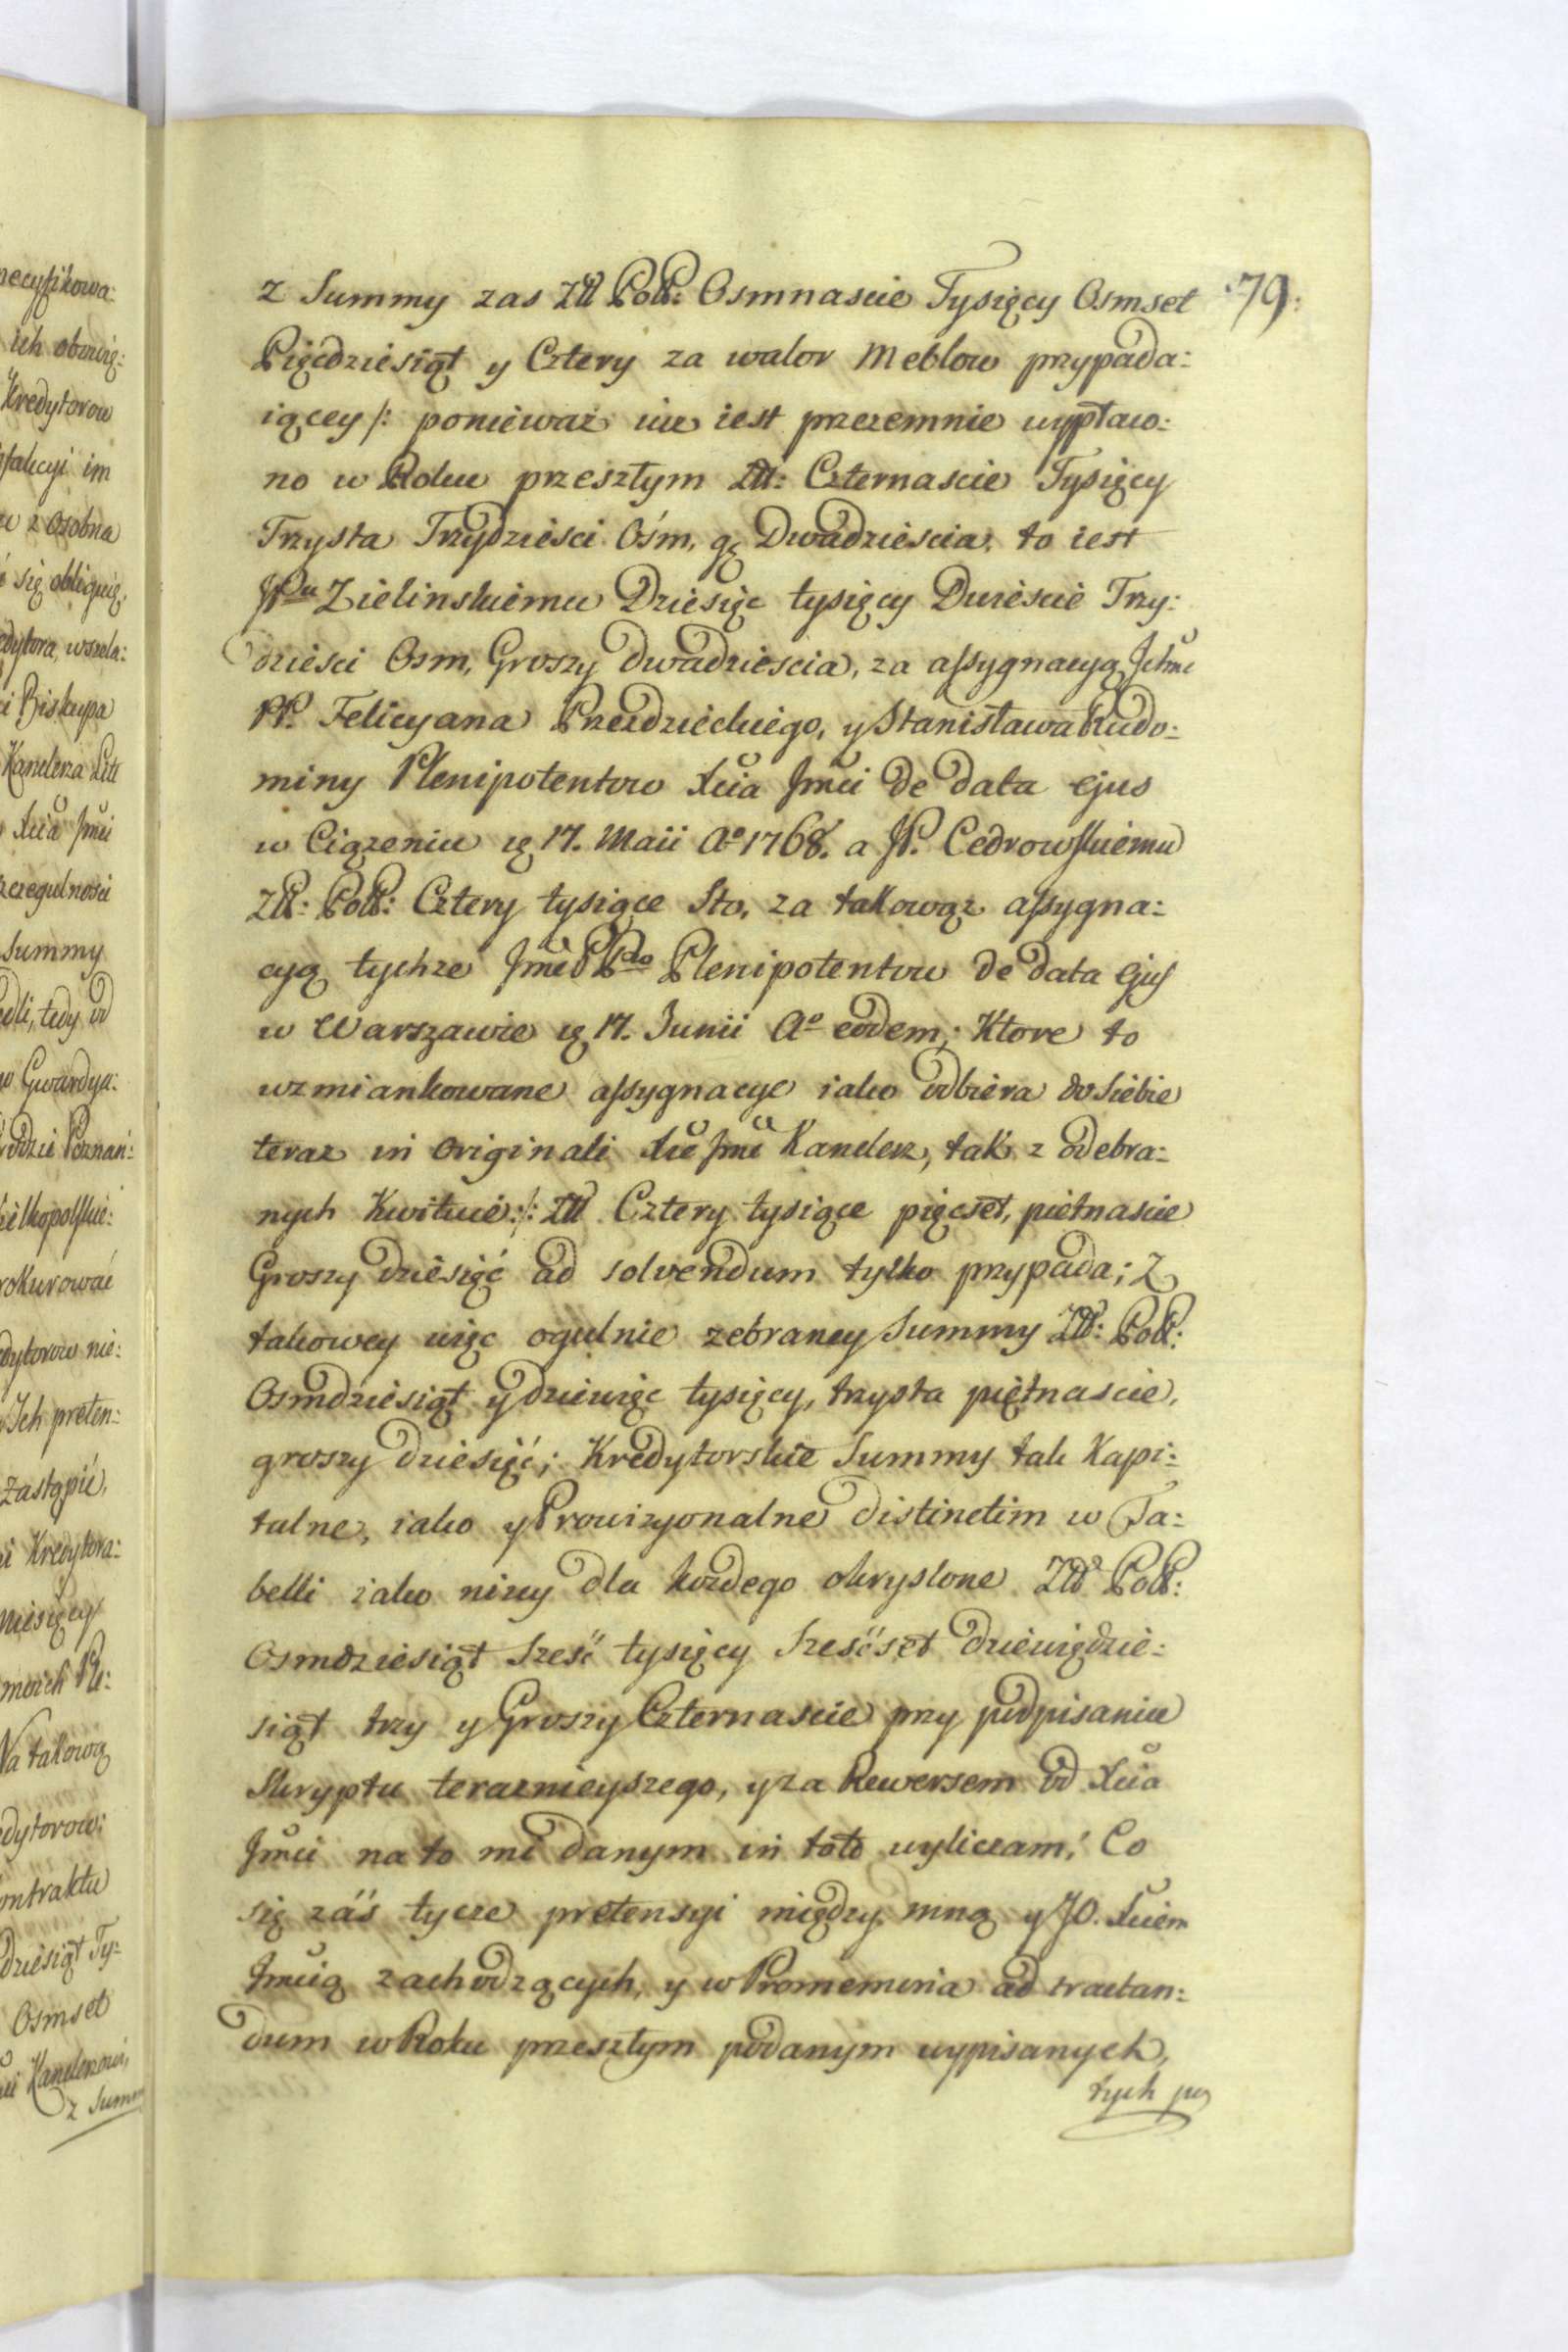 necyfikowa:
ich obowią:
Kredytorow
im
z osobna
się obliguię,
wszela:
Biskupa
Kanclerza Litt
Xcia Jmći
szczegulności
Summy
tedy od
Gwardya:
Poznań:
wielkopolskie:
prokurować
nie:
Ich preten:
zastąpić,
Kredytora:
miesięcy
moich Ple:
Na takową
Kredytorow:
Kontraktu
dziesiąt Ty:
Osmset
Kanclerzowi,
z Summ
79.
z Summy zas Złł Poll: Osmnascie Tysięcy Osmset
Pięćdziesiąt y Cztery za walor Meblow przypada:
iącey /: ponieważ iuz iest przezemnie wypłaco:
no w Roku przeszłym Złł: Czternascie Tysięcy
Trzysta Trzydzieści Ośm, gę Dwadzieścia, to iest
JPu Zielinskiemu Dziesięc tysięcy Dwieście Trzy:
dzieści Osm, Groszy dwadziescia, za assygnacyą Ichmć
PP. Felicyana Przezdzieckiego, y Stanisława Rudo:
miny Plenipotentow Xcia Jmći de data ejus
w Ciązeniu 17. Maii Aº 1768. a JP. Cedrowskiemu
Złł: Poll: Cztery tysiące Sto, za takowąz assygna:
cyą tychze Jmć Plenipotentow de data ejus
w Warszawie 17. Junii Aº eodem; Ktore to
wzmiankowane assygnacye iako odbiera do siebie
teraz in originali Xże Jmć Kanclerz, tak z odebra:
nych Kwituie :/: Złł Cztery tysiące pięcset, pietnascie
Groszy dziesięć ad solvendum tylko przypada; Z
takowey więc ogulnie zebraney Summy Złł: Poll:
Osmdziesiąt y dziewięc tysięcy, trzysta piętnascie,
groszy dziesięć; Kredytorskie Summy tak Kapi:
talne, iako y Prowizyonalne distinctim w Ta:
belli iako nizey dla kozdego okryslone Złł Poll:
Osmdziesiąt Sześć tysięcy Sześćset dziewiędzie:
siąt trzy y Groszy Czternascie przy podpisaniu
Skryptu terazneyszego, y za Rewersem od Xcia
Jmći na to mi danym in toto wyliczam; Co
się zaś tycze pretensyi między mną y JO. Xciem
Jmćią zachodzących, y w Promemoria ad tractan:
dum w Roku przeszłym podanym wypisanych,
tych po